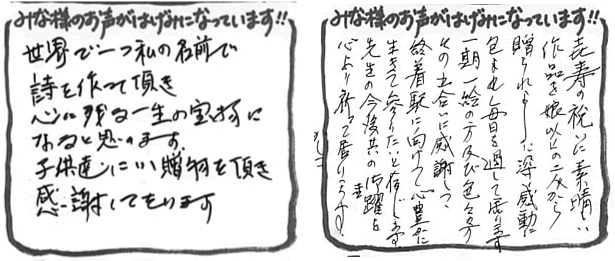 みな様のお声がはげみになっています!!
世界で一つ私の名前で
詩を作って頂き
心に残る一生の宝物に
なると思います。
子供達にいい贈物を頂き
感謝しております
みな様のお声がはげみになっています!!
喜寿の祝いに素晴しい
作品を娘以上の二人から
贈られました。深い感動に
包まれ毎日を過して居ります
一期一絵の方及び色々な方
との出合いに感謝して、
終着駅に向けて心豊かに
生きて参りたいと存じます
先生の今後共の御活躍を
心より祈って居ります。